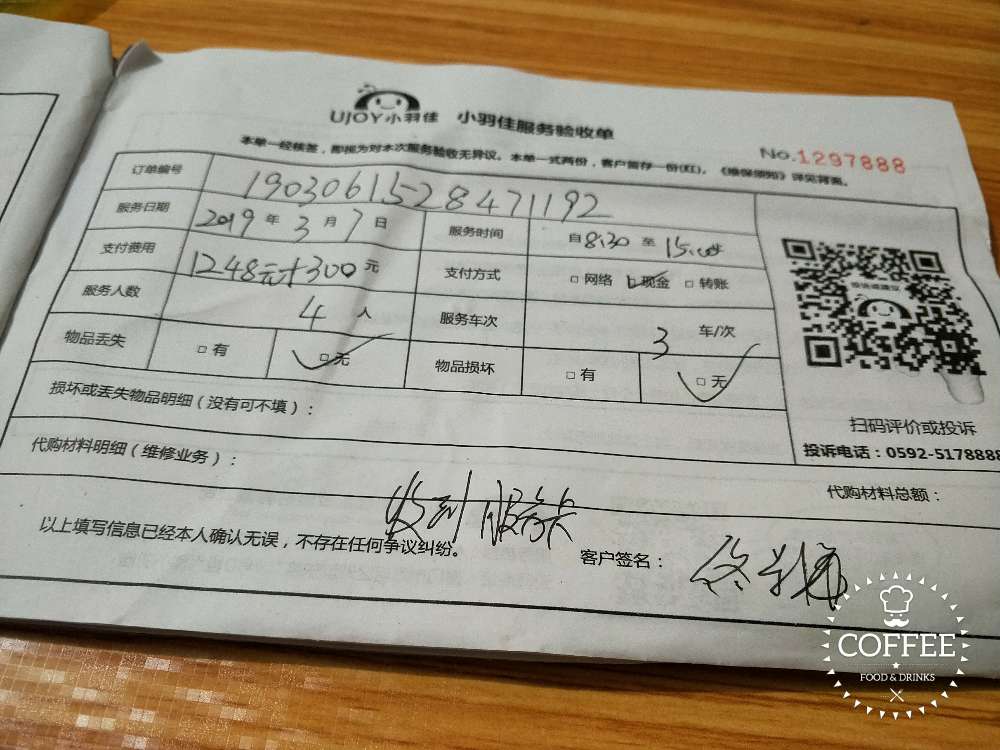 UJOY小羽佳 小羽佳服务验收单
本单一经核签，即视为对本次服务验收无异议。本单一式两份，客户留存一份(红)。《维保须知》详见背面。
No.1297888
订单编号 1903061528471192
服务日期 2019 年 3 月 7 日 服务时间 自8:30 至 15:00
支付费用 1248元+300 元 支付方式 □ 网络 □ 现金 □ 转账
服务人数 4 人 服务车次 3 车/次
物品丢失 □ 有 □ 无 物品损坏 □ 有 □ 无
损坏或丢失物品明细（没有可不填）：
扫码评价或投诉
投诉电话：0592-5178888
代购材料明细（维修业务）： 代购材料总额：
收到服务卡
以上填写信息已经本人确认无误，不存在任何争议纠纷。 客户签名：
COFFEE
FOOD & DRINKS